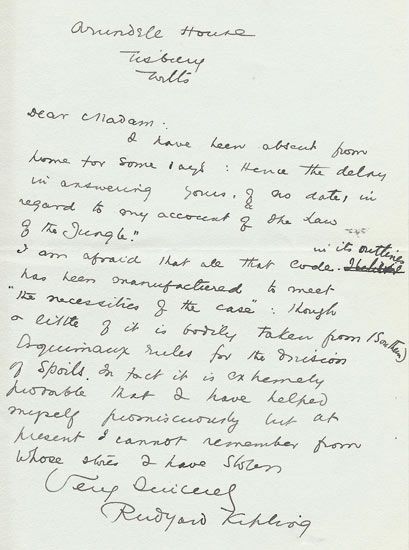 Arundell House
Tisbury
Wilts
Dear Madam:
I have been absent from
home for some days: Hence the delay
in answering yours, of no date, in
regard to my account of "the Law
of the Jungle."
in its outlines
I am afraid that all that code
has been manufactured to meet
"the necessities of the case": though
a little of it is bodily taken from (Southern)
Esquimaux rules for the division
of spoils. In fact it is extremely
probable that I have helped
myself promiscuously but at
present I cannot remember from
whose stories I have stolen
Very Sincerely
Rudyard Kipling